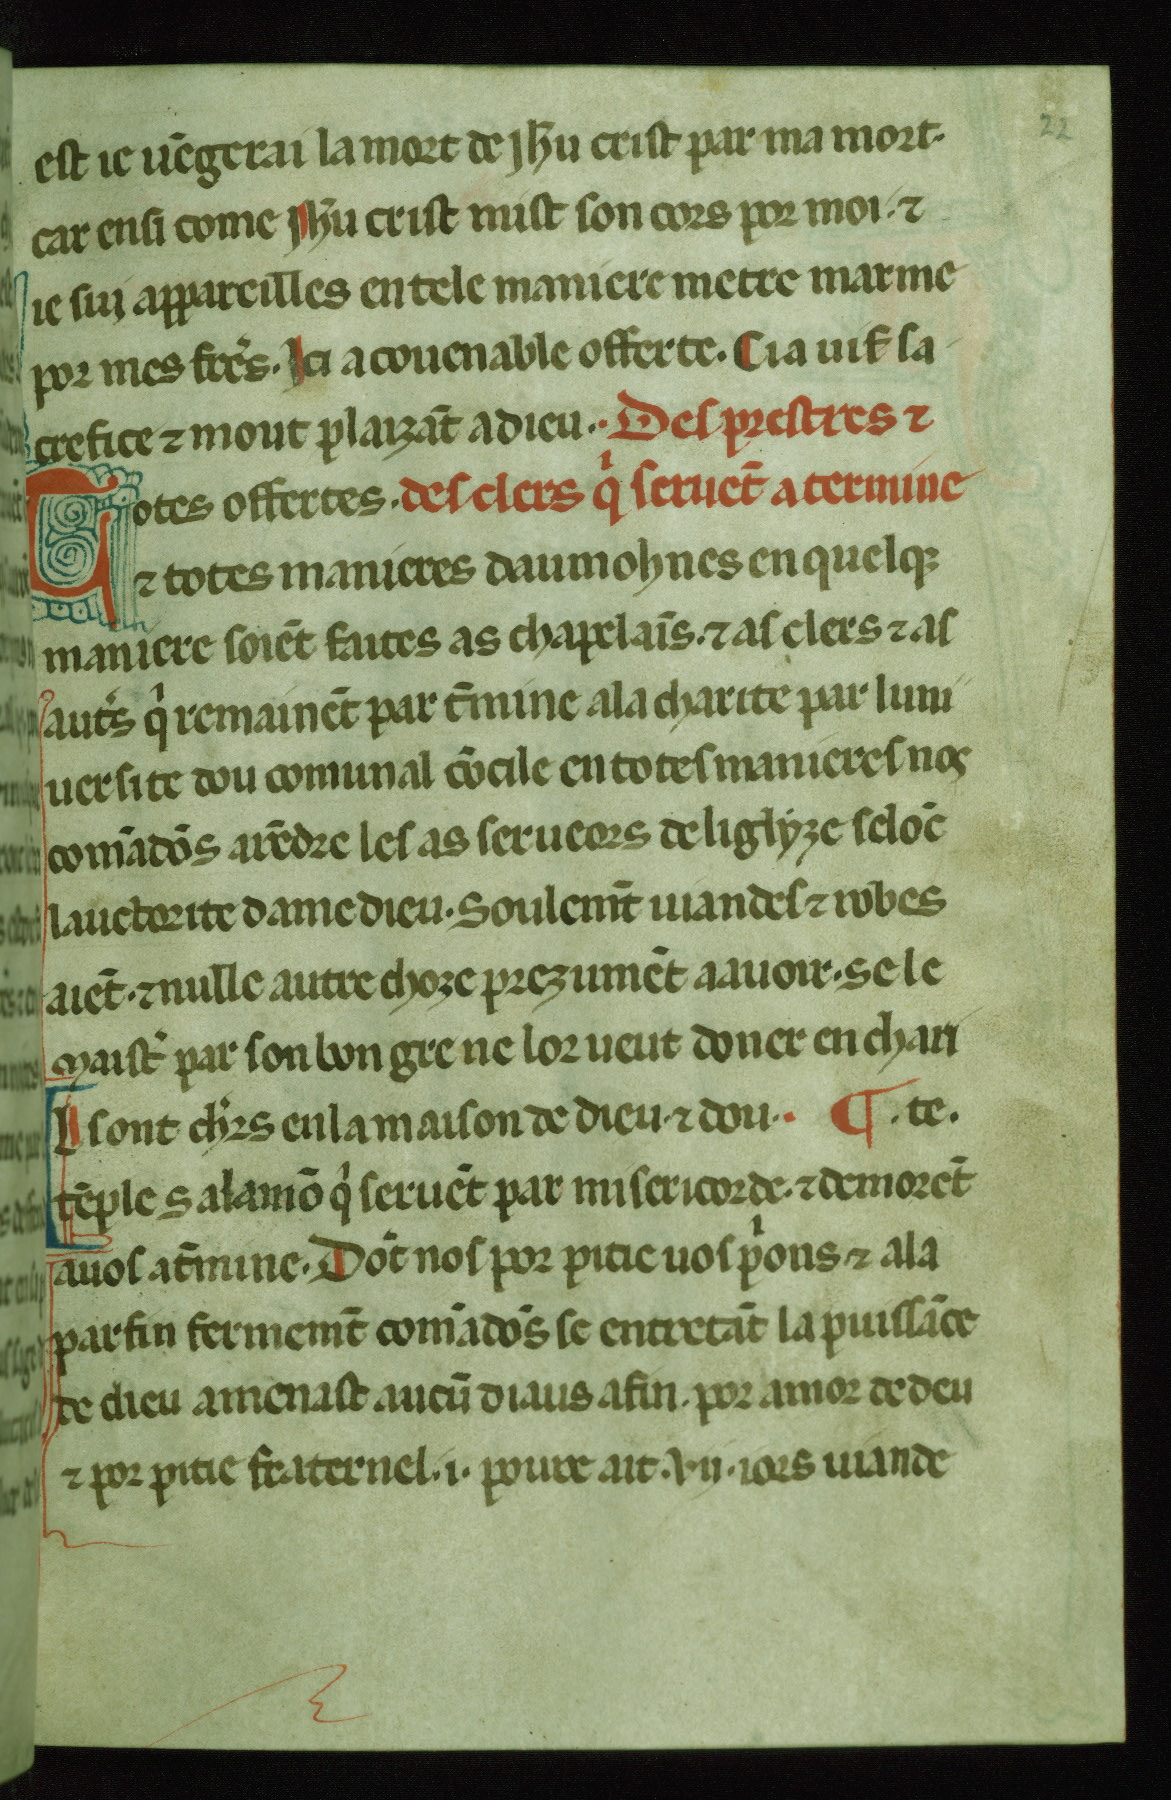 22
est ie uēgerai la mort de jh̄u crist par ma mort.
car ensi come jh̄u crist mist son cors por moi. ⁊
ie sui appareilles en tele maniere metre marme
por mes fr̄es. Ici a couenable offerte. Ci a uif sa
crefice ⁊ mout plaizāt a dieu. Des prestres ⁊
Totes offertes. des clers q̓ seruēt a termine
⁊ totes manieres daumohnes en quelq̄
maniere soiēt faites as chapelaīs. ⁊ as clers ⁊ as
aut̓s q̓ remainēt par t̄mine a la charite par luni
uersite dou comunal cōcile en totes manieres nos
comādōs a rēdre les as serueors de liglyze selōc
lauctorite dame dieu. Soulemēt uiandes ⁊ robes
aiēt. ⁊ nulle autre choze prezumēt a auoir. se le
maist̓ par son bon gre ne lor ueut doner en chari
Il sont ch̓rs en la maison de dieu. ⁊ dou. ¶ .te.
tēple salamō q̓ seruēt par misericorde. ⁊ demorēt
a uos a t̄mine. Dōt nos por pitie uos p̓ons. ⁊ a la
parfin fermemēt comādōs se entretāt la puissāce
de dieu amenast aucū diaus a fin. por amor de deu
⁊ por pitie fraternel. i. poure ait .vii. iors uiande